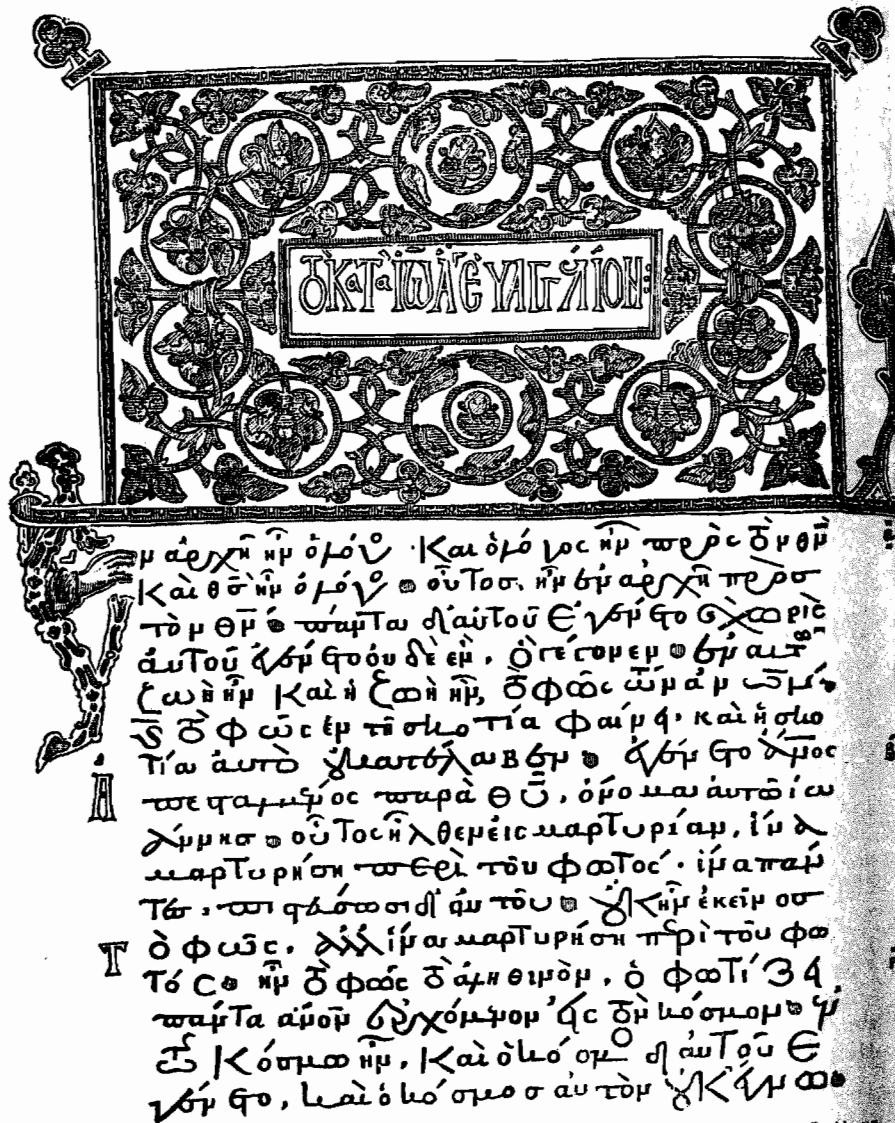 τὸ κατὰ ἰω ἅ εὐαγγέλιον:
ἐν ἀρχῆ ἦν ὁ λόγο · Και ὁ λόγος ἦν πρὸς τὸν θν
Καὶ θσ ἦν ὁ λόγο · οὗτοσ, ἦν ἐν ἀρχῆ πρὸσ
τὸν θν · πάντα δι αὐτοῦ ἐγένετο ϗ χωρὶς
ἀυτοῦ ἐγένετο ὀυδὲ ἐν, ὃ γέγονεν · ἐν αυτω
ζωὴ ἦν Καὶ ἡ ζωὴ ἦν, τὸ φῶς τῶν ἀνων ·
ϗ τὸ φῶς ἐν τῆ σκοτία φαίνει · καὶ ἡ σκο
τία ἀυτὸ ὀυ κατέλαβεν · ἐγένετο ἄνος
Ἀπεσταλμένος παρὰ θυ, ὄνομα αυτῶ ἰω
άννησ · οὗτος ἦλθεν εἰς μαρτυρίαν, ἵνα
μαρτυρήση περὶ τοῦ φωτος · ἵνα παν
τες, πιστέυσωσι δι ἀυτοῦ · ὀυκ ἦν ἐκεῖνοσ
Τὸ φῶς, ἀλλ ἵνα μαρτυρήση πρὶ τοῦ φω
τός · ἦν τὸ φῶς τὸ ἀληθινὸν, ὁ φωτίζει
πάντα ανον ἐρχόμενον εἰς τὸν κόσμον · ἐν
τῶ Κόσμω ἦν, Καὶ ὁ κόσμο δι αυτοῦ ἐ
γένετο, καὶ ὁ κόσμοσ αὐτὸν ὀυκ ἔγνω ·